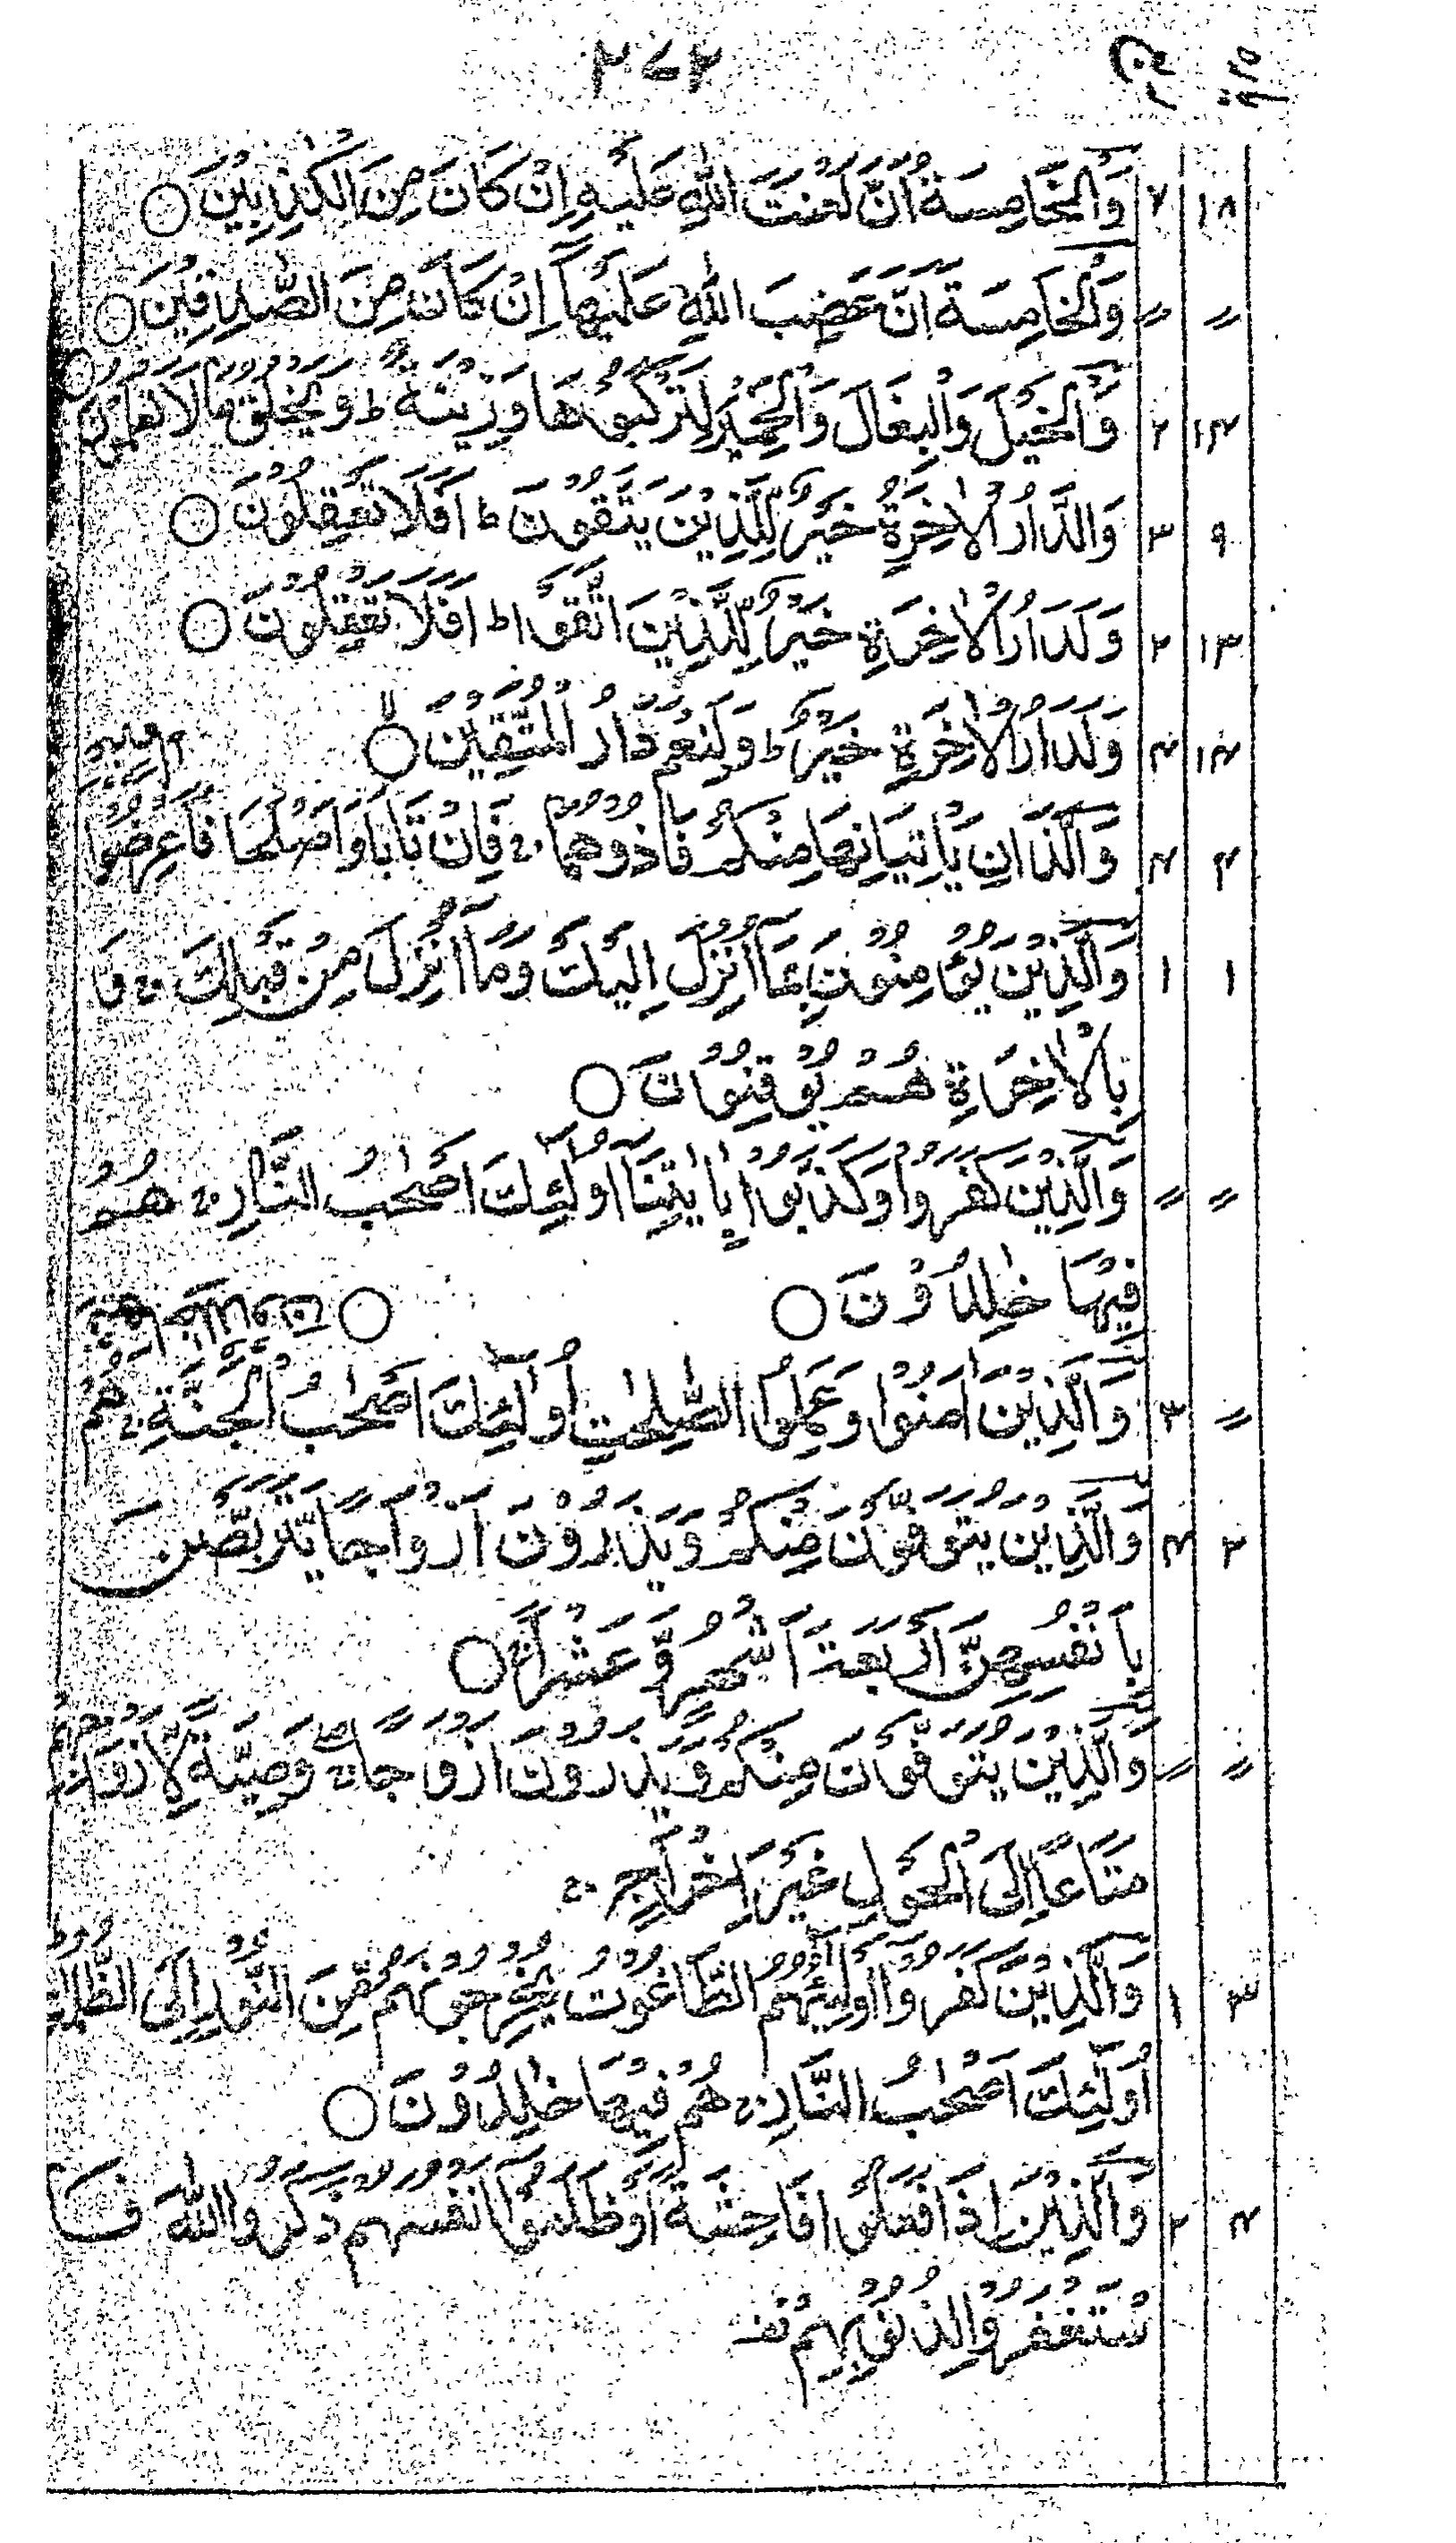 ۲۷۴
۱۸ ۷ وَالْخَامِسَةُ اَنَّ لَعْنَتَ اللّٰهِ عَلَيْهِ اِنْ كَانَ مِنَ الْكٰذِبِيْنَ ○
〃 〃 وَالْخَامِسَةَ اَنَّ غَضَبَ اللّٰهِ عَلَيْهَآ اِنْ كَانَ مِنَ الصّٰدِقِيْنَ ○
۱۴ ۲ وَّالْخَيْلَ وَالْبِغَالَ وَالْحَمِيْرَ لِتَرْكَبُوْهَا وَزِيْنَةً ط وَيَخْلُقُ مَا لَا تَعْلَمُوْنَ ○
۹ ۳ وَالدَّارُ الْاٰخِرَةُ خَيْرٌ لِّلَّذِيْنَ يَتَّقُوْنَ ط اَفَلَا تَعْقِلُوْنَ ○
۱۳ ۲ وَلَدَارُ الْاٰخِرَةِ خَيْرٌ لِّلَّذِيْنَ اتَّقَوْا ط اَفَلَا تَعْقِلُوْنَ ○
۱۴ ۴ وَلَدَارُ الْاٰخِرَةِ خَيْرٌ ط وَلَنِعْمَ دَارُ الْمُتَّقِيْنَ ○
۴ ۴ وَالَّذَانِ يَاْتِيَانِهَا مِنْكُمْ فَاٰذُوْهُمَا ج فَاِنْ تَابَا وَاَصْلَحَا فَاَعْرِضُوْا
۱ ۱ وَالَّذِيْنَ يُؤْمِنُوْنَ بِمَآ اُنْزِلَ اِلَيْكَ وَمَآ اُنْزِلَ مِنْ قَبْلِكَ ج وَ
بِالْاٰخِرَةِ هُمْ يُوْقِنُوْنَ ○
〃 〃 وَالَّذِيْنَ كَفَرُوْا وَكَذَّبُوْا بِاٰيٰتِنَآ اُولٰٓئِكَ اَصْحٰبُ النَّارِ ج هُمْ
فِيْهَا خٰلِدُوْنَ ○ ○
〃 ۳ وَالَّذِيْنَ اٰمَنُوْا وَعَمِلُوا الصّٰلِحٰتِ اُولٰٓئِكَ اَصْحٰبُ الْجَنَّةِ ج هُمْ
۲ ۴ وَالَّذِيْنَ يُتَوَفَّوْنَ مِنْكُمْ وَيَذَرُوْنَ اَزْوَاجًا يَّتَرَبَّصْنَ
بِاَنْفُسِهِنَّ اَرْبَعَةَ اَشْهُرٍ وَّعَشْرًا ج ○
〃 〃 وَالَّذِيْنَ يُتَوَفَّوْنَ مِنْكُمْ وَيَذَرُوْنَ اَزْوَاجًا ج وَّصِيَّةً لِّاَزْوَاجِهِمْ
مَّتَاعًا اِلَى الْحَوْلِ غَيْرَ اِخْرَاجٍ ج
۳ ۱ وَالَّذِيْنَ كَفَرُوْٓا اَوْلِيٰٓئُهُمُ الطَّاغُوْتُ يُخْرِجُوْنَهُمْ مِّنَ النُّوْرِ اِلَى الظُّلُمٰتِ
اُولٰٓئِكَ اَصْحٰبُ النَّارِ ج هُمْ فِيْهَا خٰلِدُوْنَ ○
۴ ۲ وَالَّذِيْنَ اِذَا فَعَلُوْا فَاحِشَةً اَوْ ظَلَمُوْٓا اَنْفُسَهُمْ ذَكَرُوا اللّٰهَ فَا
سْتَغْفَرُوْا لِذُنُوْبِهِمْ قف